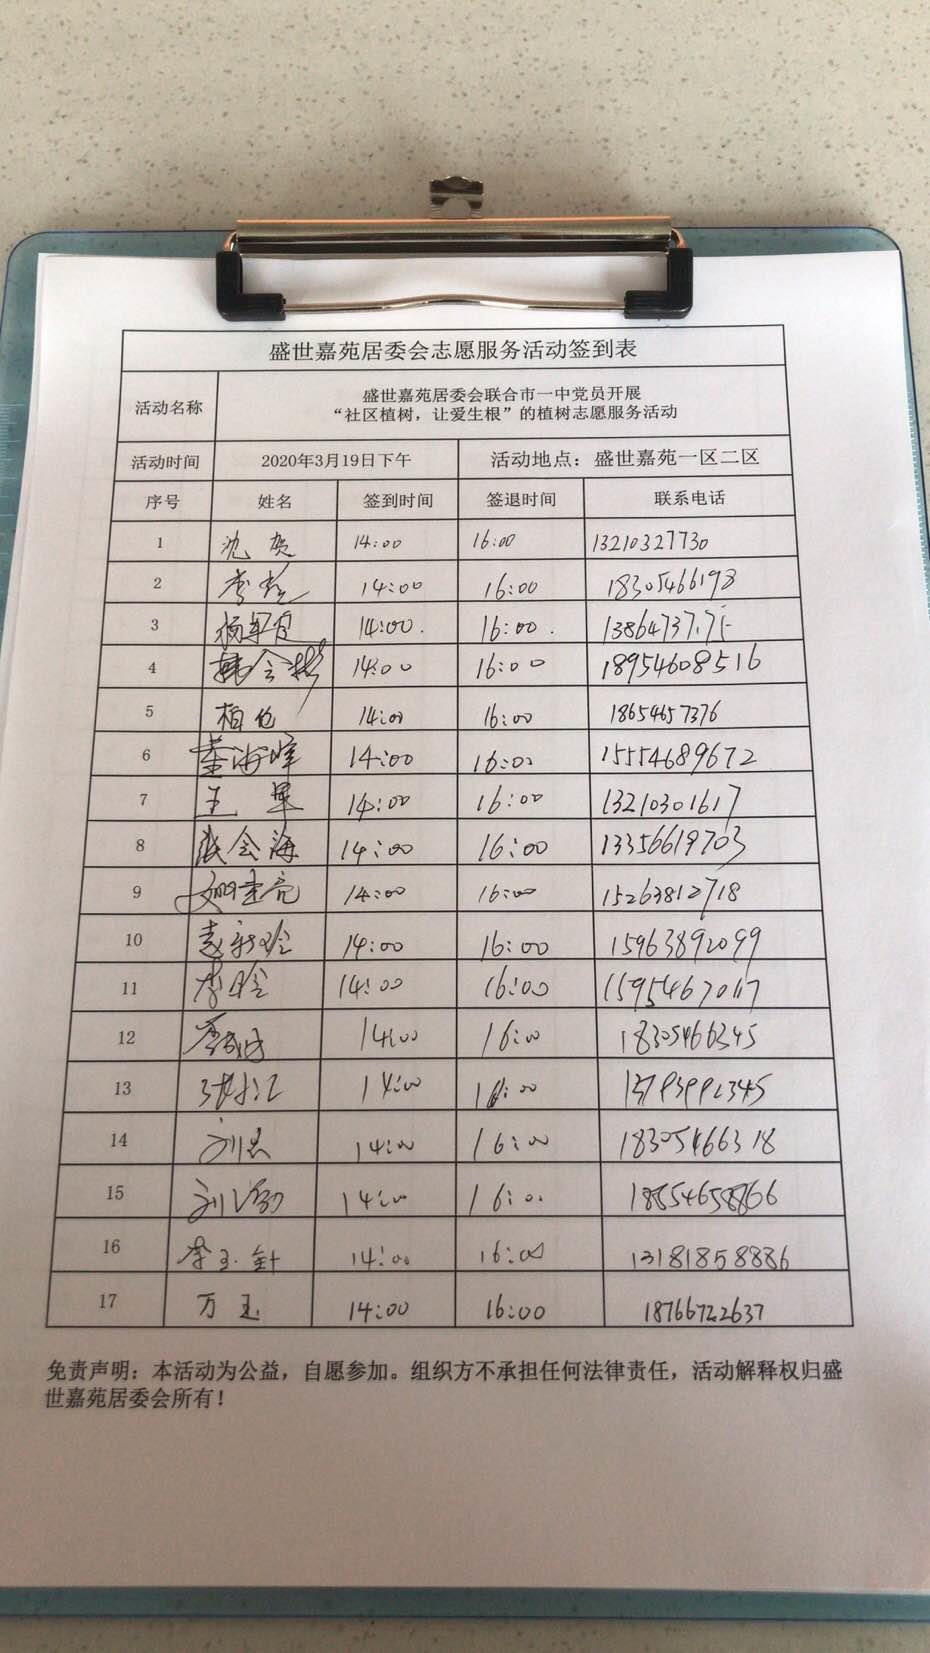 盛世嘉苑居委会志愿服务活动签到表
活动名称 盛世嘉苑居委会联合市一中党员开展
“社区植树，让爱生根”的植树志愿服务活动
活动时间 2020年3月19日下午 活动地点：盛世嘉苑一区二区
序号 姓名 签到时间 签退时间 联系电话
1 沈贺 14:00 16:00 13210327730
2 14:00 16:00 18305466193
3 14:00. 16:00.
4 14:00 16:00 18954608516
5 柏仓 14:00 16:00 18654657376
6 董海峰 14:00 16:00 15554689672
7 王军 14:00 16:00 13210301617
8 张会海 14:00 16:00 13356619703
9 14:00 16:00 15263812718
10 14:00 16:00 15963892099
11 李晗 14:00 16:00
12 14:00 16:00 18305466345
13 14:00 16:00
14 刘忠 14:00 16:00 18305466318
15 14:00 16:00
16 14:00 16:00 13181858886
17 万玉 14:00 16:00 18766722637
免责声明：本活动为公益，自愿参加。组织方不承担任何法律责任，活动解释权归盛
世嘉苑居委会所有！